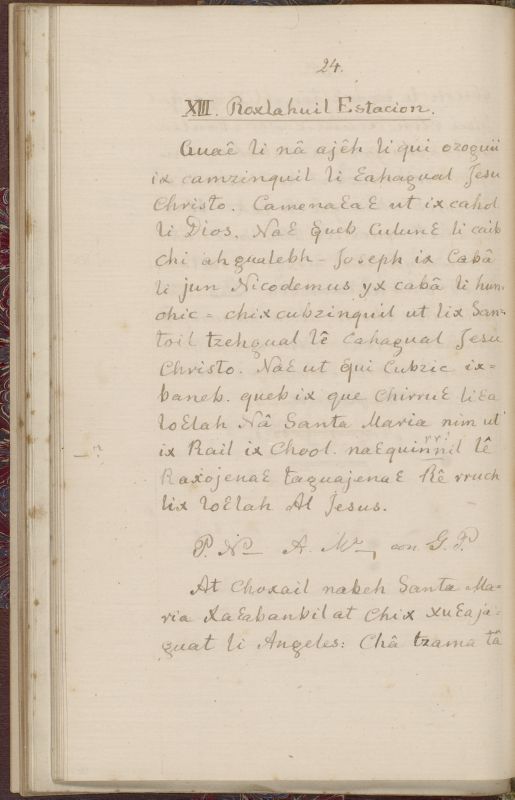 24.
XIII. Roxlahuil Estacion.
Guaê li nâ ajêh li qui ozoguii
ix camzinquil li Eahagual Jesu
Christo. CamenaEaE ut ix cahd
li Dios. NaE queb CulunE li caib
chi ah gualebh - Joseph ix Cabâ
li jun Nicodemus yx cabâ li hun.
chic = chix cubzinquil ut lix San=
toil tzehgual lê Cahagual Jesu
Christo. NaE ut qui Cubzic ix=
baneb. queb ix que ChirruE liEa
loElah Nâ Santa Maria nim ut
ix Rail ix Chool. naEquinnil lê
RaxojenaE taguajenaE Rê rruch
lix loElah Al Jesus.
P. Nº A. Mª con G. P.
At Choxail nabeh Santa Ma=
ria XaEabanbil at Chix XuEaja=
guat li Angeles: Châ tzama tâ